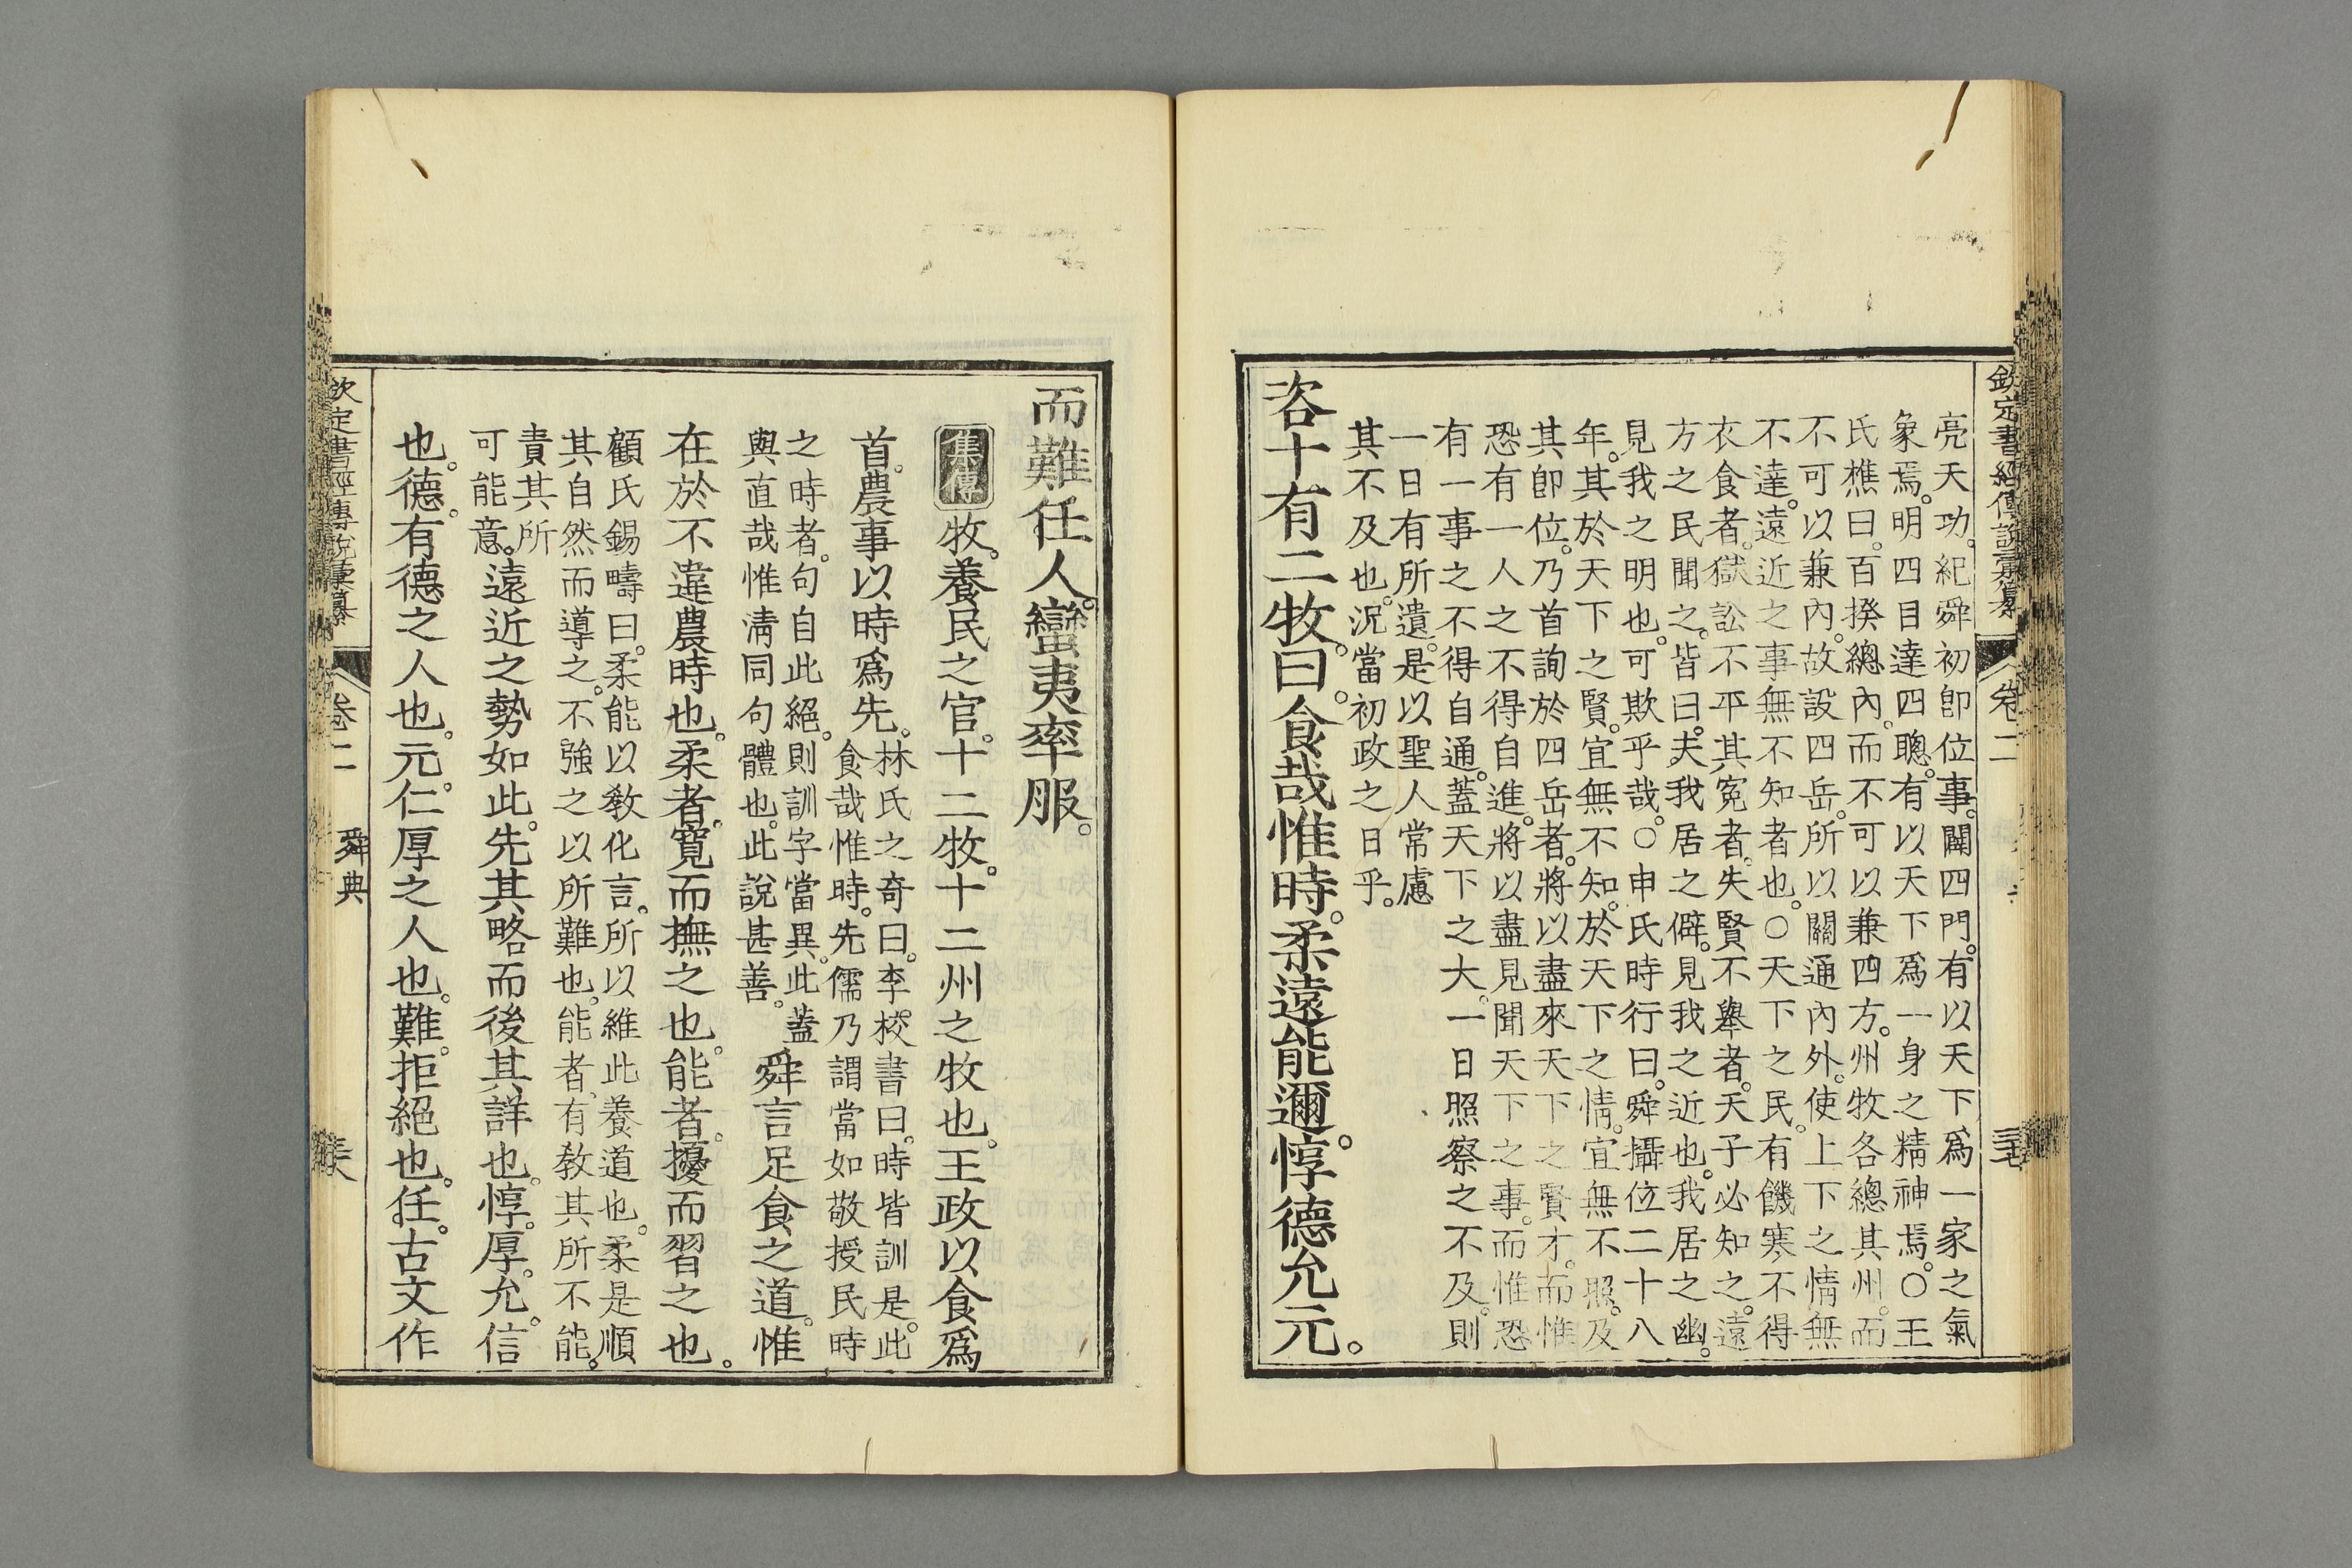 欽定書經傳說彙纂 卷二
亮天功。紀舜初卽位事。闢四門。有以天下爲一家之氣
象焉。明四目達四聰。有以天下爲一身之精神焉。○王
氏樵曰。百揆總內。而不可以兼四方。州牧各總其州。而
不可以兼內。故設四岳。所以關通內外。使上下之情無
不達。遠近之事無不知者也。○天下之民。有饑寒不得
衣食者。獄訟不平其冤者。失賢不舉者。天子必知之。遠
方之民聞之。皆曰。夫我居之僻。見我之近也。我居之幽。
見我之明也。可欺乎哉。○申氏時行曰。舜攝位二十八
年。其於天下之賢。宜無不知。於天下之情。宜無不照。及
其卽位。乃首詢於四岳者。將以盡來天下之賢才。而惟
恐有一人之不得自進。將以盡見聞天下之事。而惟恐
有一事之不得自通。蓋天下之大。一日照察之不及。則
一日有所遺。是以聖人常慮
其不及也。況當初政之日乎。
咨十有二牧。曰。食哉惟時。柔遠能邇。惇德允元。
而難任人。蠻夷率服。
集傳 牧。養民之官。十二牧。十二州之牧也。王政以食爲
首。農事以時爲先。
林氏之奇曰。李校書曰。時皆訓是。此
食哉惟時。先儒乃謂當如敬授民時
之時者。句自此絕。則訓字當異。此蓋
與直哉惟淸同句體也。此說甚善。
舜言足食之道。惟
在於不違農時也。柔者。寬而撫之也。能者。擾而習之也。
顧氏錫疇曰。柔能以敎化言。所以維此養道也。柔是順
其自然而導之。不強之以所難也。能者。有敎其所不能。
責其所
可能意。
遠近之勢如此。先其略而後其詳也。惇。厚。允。信
也。德。有德之人也。元。仁厚之人也。難。拒絕也。任。古文作
欽定書經傳說彙纂 卷二 舜典